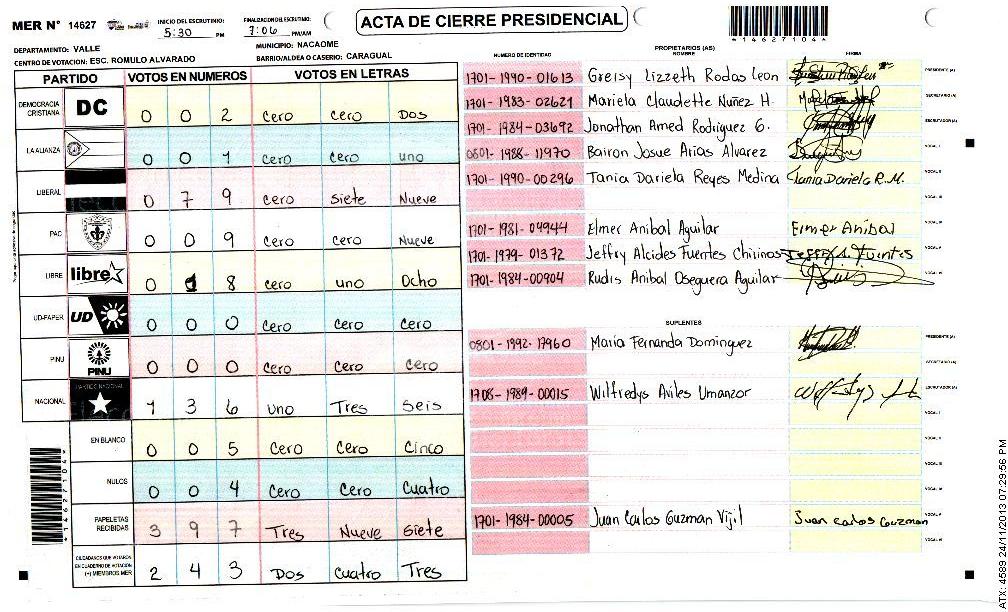 MER N° 14627
INICIO DEL ESCRUTINIO: 5:30 PM
FINALIZACION DEL ESCRUTINIO: 7:06 PM/AM
ACTA DE CIERRE PRESIDENCIAL
*14627104*
DEPARTAMENTO: VALLE
MUNICIPIO: NACAOME
CENTRO DE VOTACION: ESC. ROMULO ALVARADO
BARRIO/ALDEA O CASERIO: CARAGUAL
PARTIDO VOTOS EN NUMEROS VOTOS EN LETRAS
DEMOCRACIA CRISTIANA DC 0 0 2 cero cero Dos
LA ALIANZA 0 0 1 cero cero uno
LIBERAL 0 7 9 cero siete Nueve
PAC 0 0 9 cero cero Nueve
LIBRE libre 0 1 8 cero uno Ocho
UD-FAPER UD 0 0 0 cero cero cero
PINU PINU 0 0 0 cero cero cero
NACIONAL PARTIDO NACIONAL 1 3 6 uno Tres seis
EN BLANCO 0 0 5 cero cero cinco
NULOS 0 0 4 cero cero cuatro
PAPELETAS RECIBIDAS 3 9 7 Tres Nueve siete
CIUDADANOS QUE VOTARON EN CUADERNO DE VOTACION (+) MIEMBROS MER 2 4 3 Dos cuatro Tres
*14627104*
NUMERO DE IDENTIDAD PROPIETARIOS (AS) NOMBRE FIRMA
1701-1990-01613 Greisy Lizzeth Rodas Leon PRESIDENTE (A)
1701-1983-02621 Mariela Claudette Nuñez H. SECRETARIO (A)
1701-1984-03692 Jonathan Amed Rodriguez G. ESCRUTADOR (A)
0801-1988-11970 Bairon Josue Arias Alvarez VOCAL I
1701-1990-00296 Tania Dariela Reyes Medina Tania Dariela R.M. VOCAL II
1701-1981-04944 Elmer Anibal Aguilar Elmer Anibal
1701-1979-01372 Jeffry Alcides Fuentes Chirinos Jeffry A. Fuentes VOCAL V
1701-1984-00904 Rudis Anibal Oseguera Aguilar
SUPLENTES
0801-1992-17960 Maria Fernanda Dominguez PRESIDENTE (A)
SECRETARIO (A)
1708-1989-00015 Wilfredys Aviles Umanzor ESCRUTADOR (A)
VOCAL I
VOCAL II
VOCAL III
VOCAL IV
1701-1984-00005 Juan Carlos Guzman Vijil Juan carlos Guzman VOCAL V
VOCAL VI
ATX: 4589 24/11/2013 07:29:56 PM